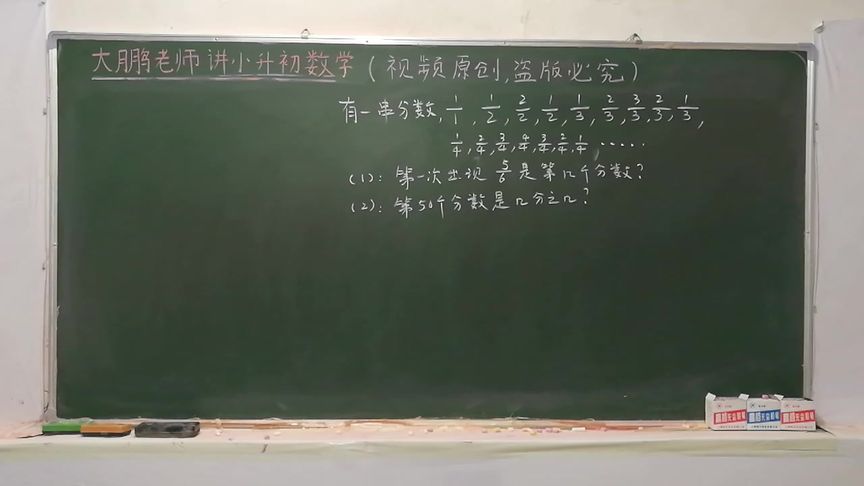 大鹏老师讲小升初数学(视频原创,盗版必究)
有一串分数, 1/1, 1/2, 2/2, 1/2, 1/3, 2/3, 3/3, 2/3, 1/3,
1/4, 2/4, 3/4, 4/4, 3/4, 2/4, 1/4 ······
(1): 第一次出现 5/6 是第几个分数?
(2): 第50个分数是几分之几?